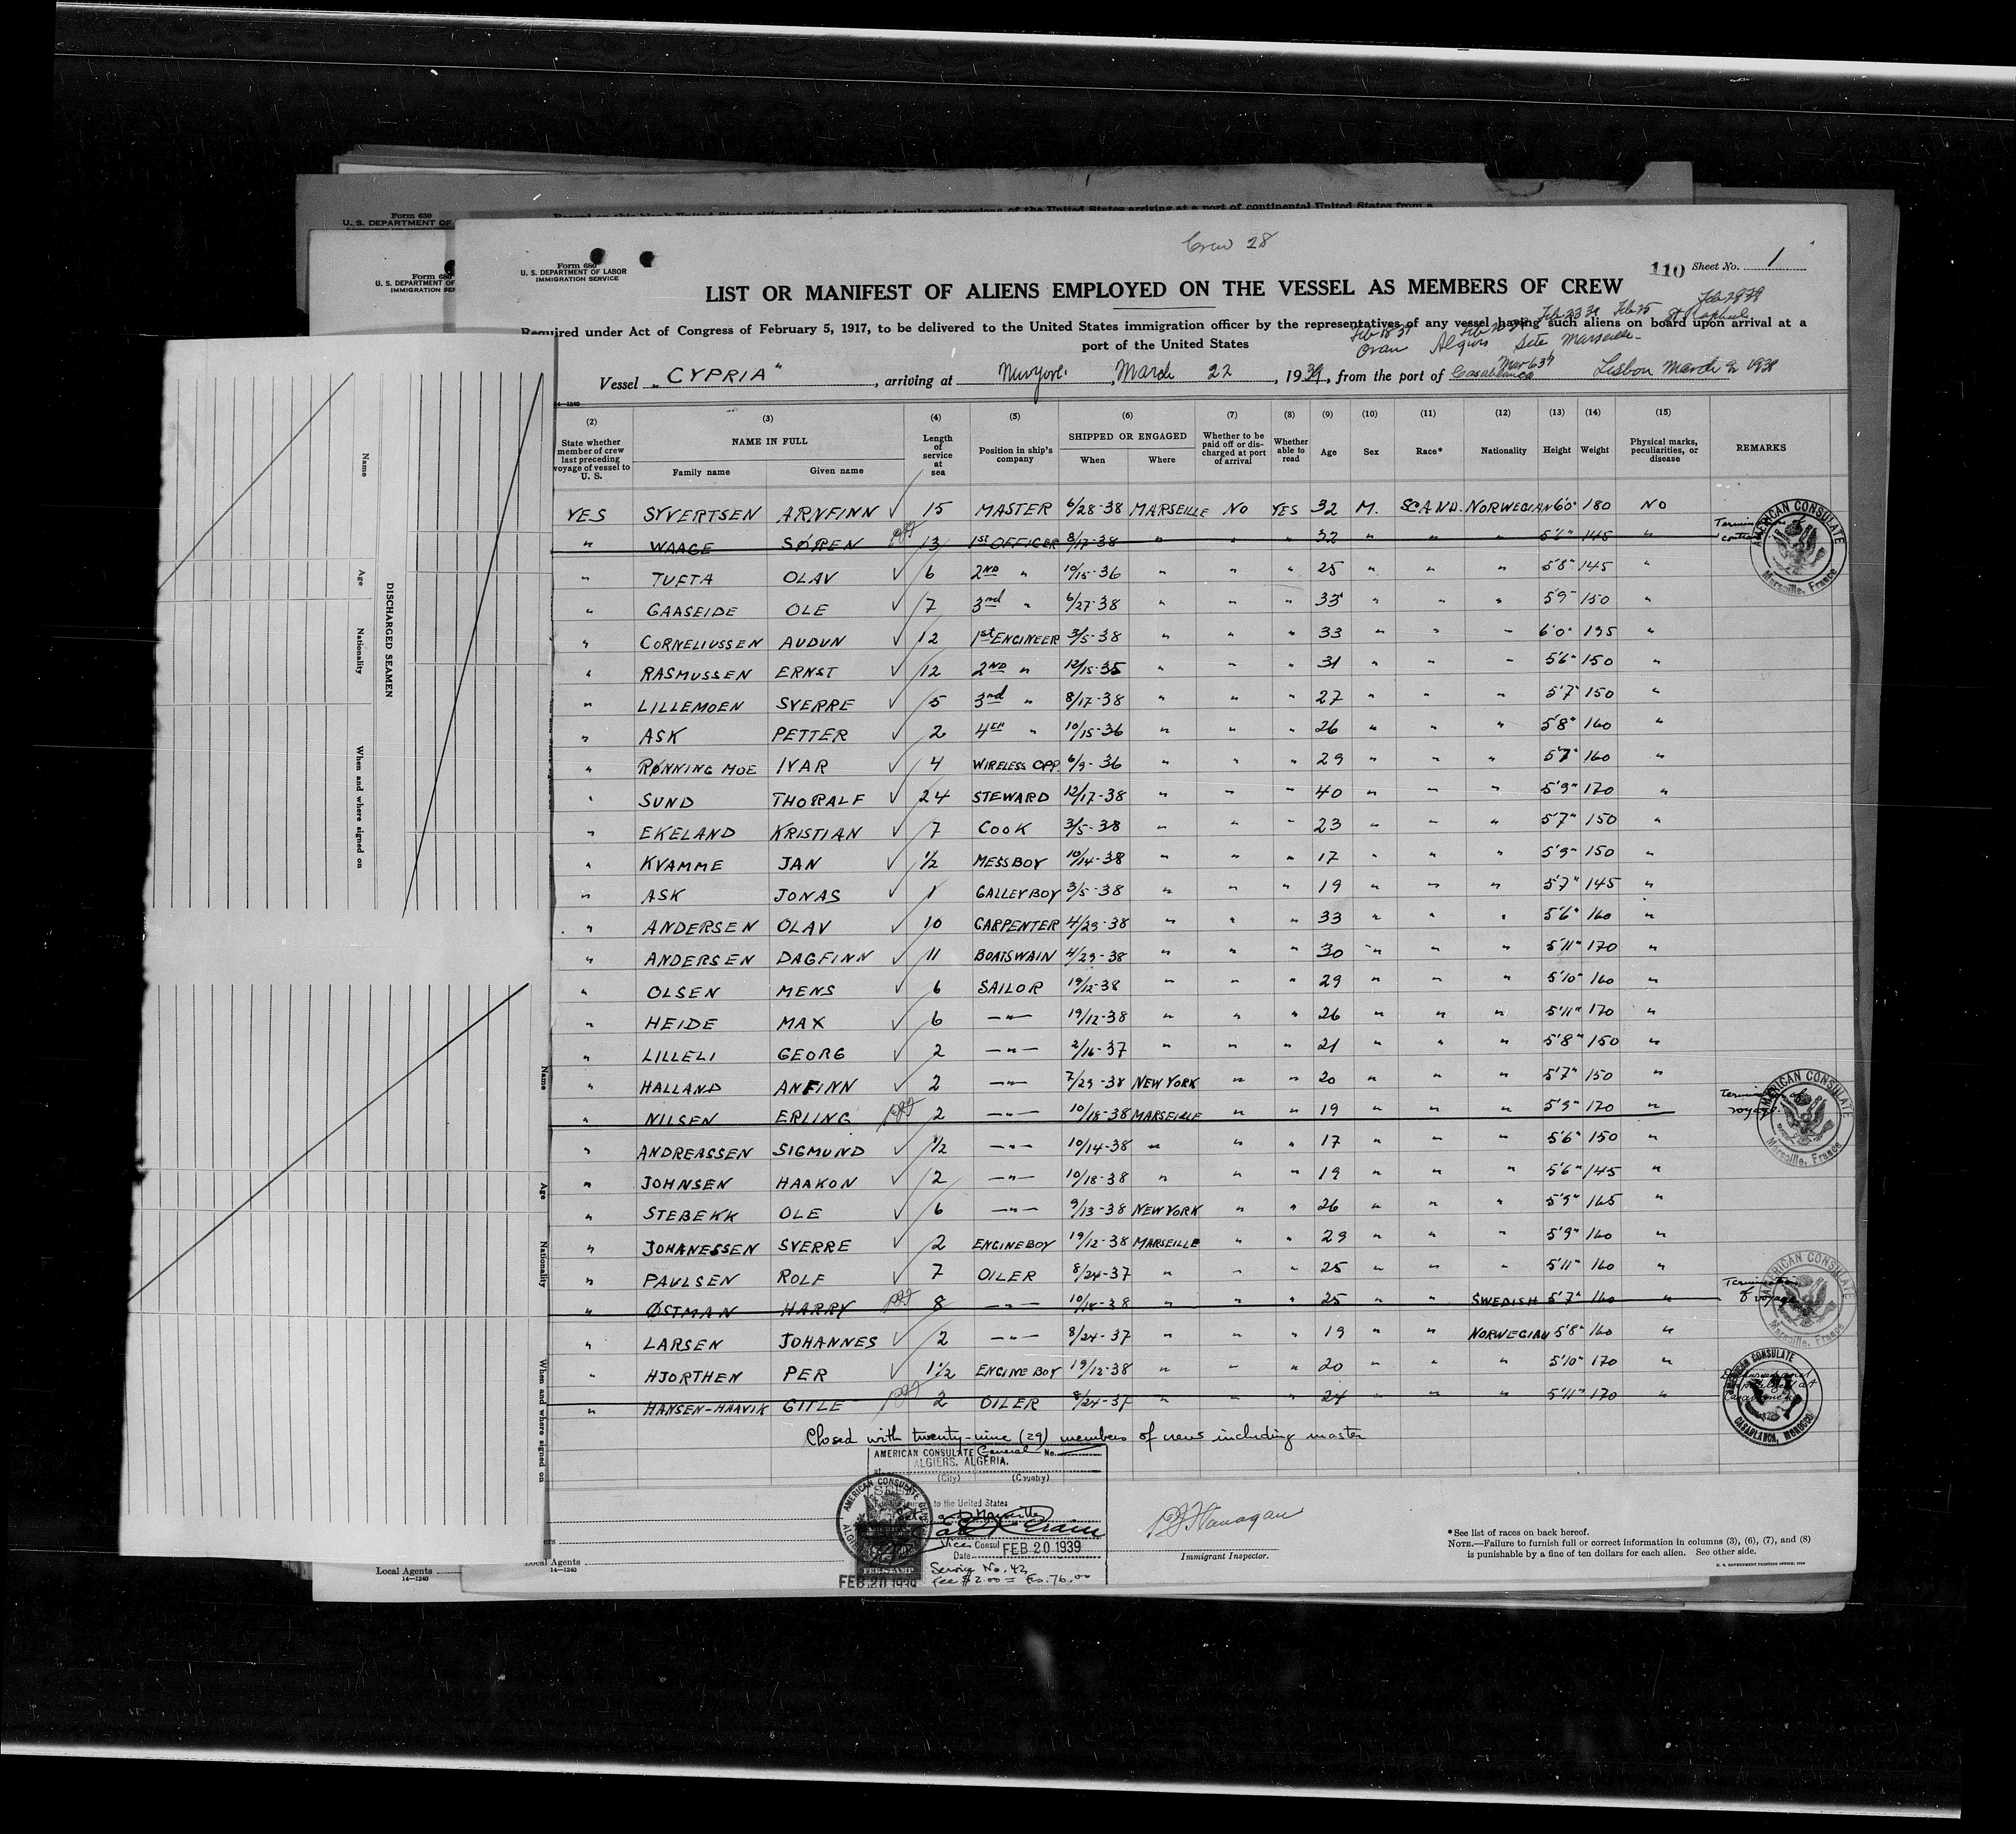 Form 630
U. S. DEPARTMENT OF
Form 680
U. S. DEPARTMENT OF
IMMIGRATION SER
Form 680
U. S. DEPARTMENT OF LABOR
IMMIGRATION SERVICE
Crew 28
110 Sheet No. 1
LIST OR MANIFEST OF ALIENS EMPLOYED ON THE VESSEL AS MEMBERS OF CREW
Required under Act of Congress of February 5, 1917, to be delivered to the United States immigration officer by the representatives of any vessel having such aliens on board upon arrival at a
port of the United States
Oran Algiers Sete Marseille St Raphael
Vessel "CYPRIA", arriving at New York, March 22, 1939, from the port of Casablanca Mar 6 39 Lisbon March
(2) (3) (4) (5) (6) (7) (8) (9) (10) (11) (12) (13) (14) (15)
State whether member of crew last preceding voyage of vessel to U. S.
NAME IN FULL
Family name Given name
Length of service at sea
Position in ship's company
SHIPPED OR ENGAGED
When Where
Whether to be paid off or discharged at port of arrival
Whether able to read
Age Sex Race* Nationality Height Weight
Physical marks, peculiarities, or disease
REMARKS
YES SYVERTSEN ARNFINN ✓ 15 MASTER 6/28-38 MARSEILLE NO YES 32 M. SCAND. NORWEGIAN 6'0" 180 NO
" WAAGE SØREN 13 1st OFFICER 8/17-38 " " " 32 " " " 5'6" 145 " Termin of contr
" TUFTA OLAV ✓ 6 2ND " 10/15-36 " " " 25 " " " 5'8" 145 "
" GAASEIDE OLE ✓ 7 3nd " 6/27-38 " " " 33 " " " 5'9" 150 "
" CORNELIUSSEN AUDUN ✓ 12 1st ENGINEER 3/5-38 " " " 33 " " " 6'0" 195 "
" RASMUSSEN ERNST ✓ 12 2ND " 12/15-35 " " " 31 " " " 5'6" 150 "
" LILLEMOEN SVERRE ✓ 5 3nd " 8/17-38 " " " 27 " " " 5'7" 150 "
" ASK PETTER ✓ 2 4th " 10/15-36 " " " 26 " " " 5'8" 160 "
" RØNNING MOE IVAR ✓ 4 WIRELESS OPP. 6/9-36 " " " 29 " " " 5'7" 160 "
" SUND THORALF ✓ 24 STEWARD 12/17-38 " " " 40 " " " 5'9" 170 "
" EKELAND KRISTIAN ✓ 7 COOK 3/5-38 " " " 23 " " " 5'7" 150 "
" KVAMME JAN ✓ 1/2 MESSBOY 10/14-38 " " " 17 " " " 5'9" 150 "
" ASK JONAS ✓ 1 GALLEYBOY 3/5-38 " " " 19 " " " 5'7" 145 "
" ANDERSEN OLAV ✓ 10 CARPENTER 4/29-38 " " " 33 " " " 5'6" 160 "
" ANDERSEN DAGFINN ✓ 11 BOATSWAIN 4/29-38 " " " 30 " " " 5'11" 170 "
" OLSEN MENS ✓ 6 SAILOR 19/12-38 " " " 29 " " " 5'10" 160 "
" HEIDE MAX ✓ 6 -"- 19/12-38 " " " 26 " " " 5'11" 170 "
" LILLELI GEORG ✓ 2 -"- 2/16-37 " " " 21 " " " 5'8" 150 "
" HALLAND ANFINN ✓ 2 -"- 7/29-38 NEW YORK " " 20 " " " 5'7" 150 "
" NILSEN ERLING 2 -"- 10/18-38 MARSEILLE " " 19 " " " 5'9" 170 " Termin of voyage.
" ANDREASSEN SIGMUND ✓ 1/2 -"- 10/14-38 " " " 17 " " " 5'6" 150 "
" JOHNSEN HAAKON ✓ 2 -"- 10/18-38 " " " 19 " " " 5'6" 145 "
" STEBEKK OLE ✓ 6 -"- 9/13-38 NEW YORK " " 26 " " " 5'9" 165 "
" JOHANESSEN SVERRE ✓ 2 ENGINEBOY 19/12-38 MARSEILLE " " 29 " " " 5'9" 160 "
" PAULSEN ROLF ✓ 7 OILER 8/24-37 " " " 25 " " " 5'11" 160 "
" ØSTMAN HARRY 8 -"- 10/18-38 " " " 25 " " SWEDISH 5'7" 160 " Termination of voyage
" LARSEN JOHANNES ✓ 2 -"- 8/24-37 " " " 19 " " NORWEGIAN 5'8" 160 "
" HJORTHEN PER ✓ 1 1/2 ENGINE BOY 19/12-38 " " " 20 " " " 5'10" 170 "
" HANSEN-HAAVIK GITLE 2 OILER 8/24-37 " 24 " " " 5'11" 170 "
AMERICAN CONSULATE
Marseille, France
AMERICAN CONSULATE
Marseille, France
AMERICAN CONSULATE
Marseille, France
AMERICAN CONSULATE
CASABLANCA, MOROCCO
Closed with twenty-nine (29) members of crew including master
AMERICAN CONSULATE General No.
at ALGIERS, ALGERIA.
(City) (Country)
SEEN
to the United States
Vice Consul
Date FEB 20 1939
Service No. 42
Fee $2.00 = Frs. 76.00
AMERICAN CONSULATE
FEE STAMP
FEB 20 1939
Flanagan
Immigrant Inspector.
*See list of races on back hereof.
NOTE.—Failure to furnish full or correct information in columns (3), (6), (7), and (8)
is punishable by a fine of ten dollars for each alien. See other side.
U. S. GOVERNMENT PRINTING OFFICE
Local Agents
14—1240
Local Agents
14—1240
14—1240
DISCHARGED SEAMEN
Name
Age
Nationality
When and where signed on
Name
Age
Nationality
When and where signed on